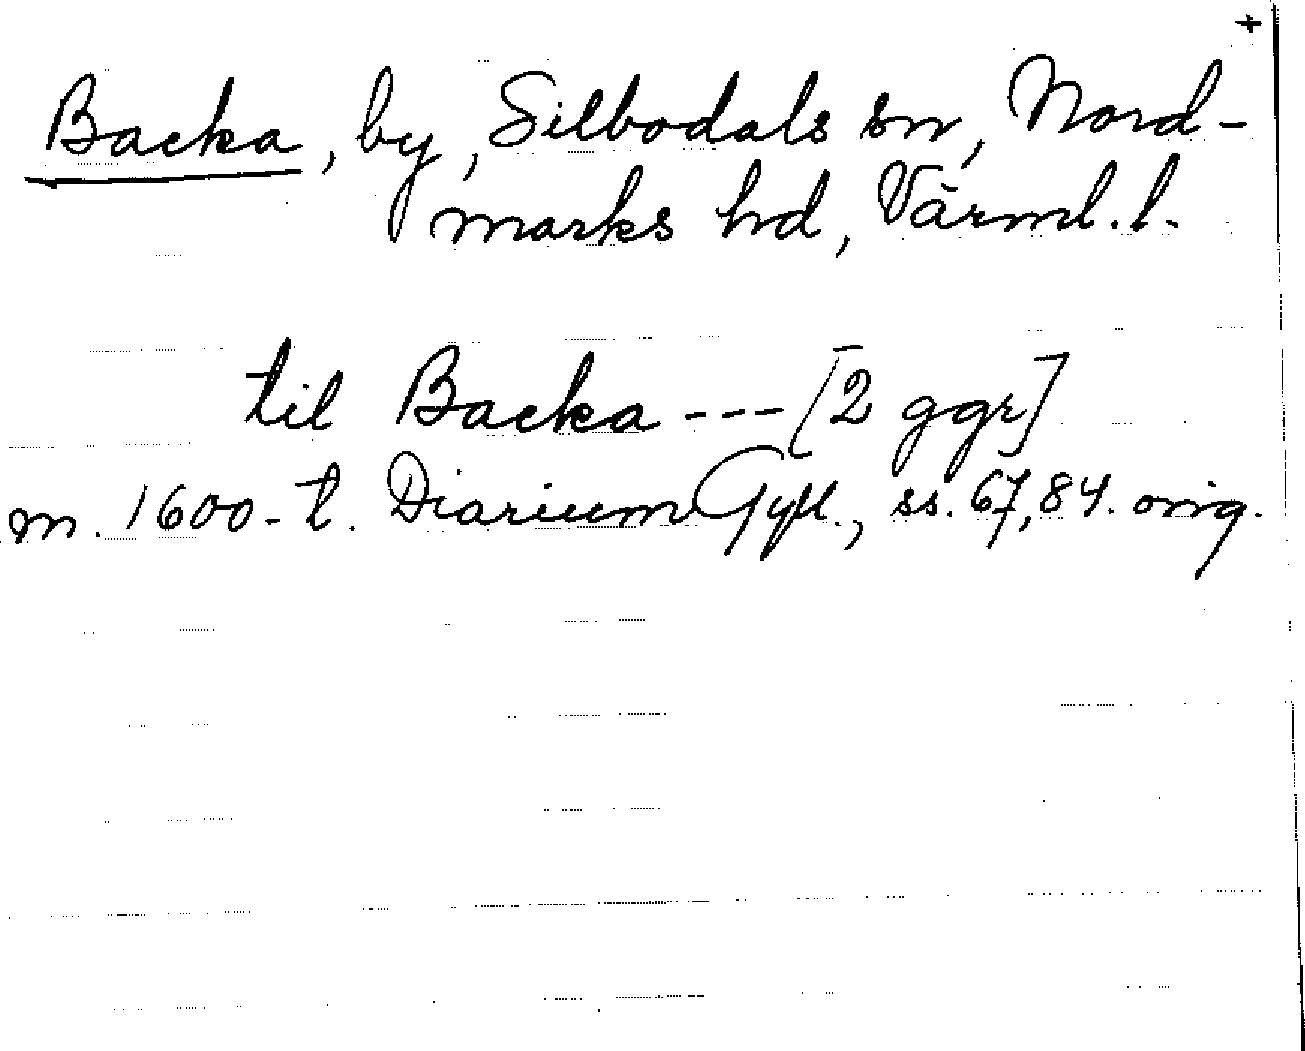 +
Backa, by, Silbodals sn, Nord-
marks hd, Värml. l.
til Backa --- [2 ggr]
m. 1600-t. Diarium Gyll., ss. 67, 84. orig.